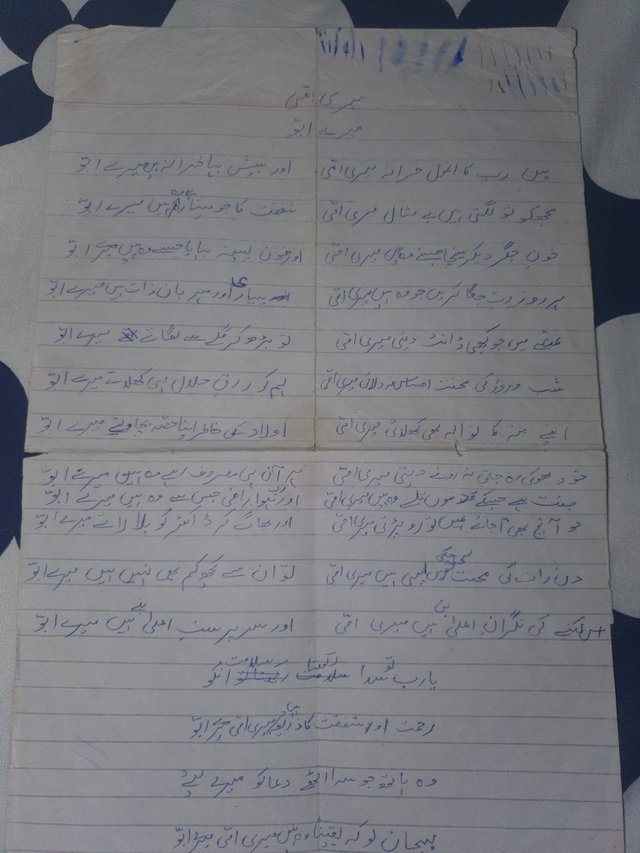 میری امّی
میرے ابّو
ہیں رب کا انمول خزانہ میری امّی اور بیش بہا خزانہ ہیں میرے ابّو
مجھکو تو لگتی ہیں بے مثال میری امّی شفقت کا جو مینارہ ہیں میرے ابّو
خونِ جگر دیکر سینچا جسنے وہ ہیں میری امّی اور خون پسینہ بہایا جسنے وہ ہیں میرے ابّو
ہر روز رت جگا کریں جو وہ ہیں میری امّی پیار اور مہربان ذات ہیں میرے ابّو
غصّے میں جو کبھی ڈانٹ دیتی میری امّی تو بڑھ کر گلے سے لگاتے میرے ابّو
شب و روز کی محنت احساس نہ دلاتی میری امّی ہم کو رزقِ حلال ہی کھلاتے میرے ابّو
اپنے منہ کا نوالہ بھی کھلاتی میری امّی اولاد کی خاطر اپنا حصّہ بچاتے میرے ابّو
خود بھوکی رہ جتی نہ رونے دیتی میری امّی ہر آن ہی مصروف رہے وہ ہیں میرے ابّو
جنت ہے جسکے قدموں تلے وہ ہیں میری امّی اور رب راضی جس سے وہ ہیں میرے ابّو
جو آنچ بھی آجائے ہمیں تو رو پڑتی میری امّی اور بھاگ کر ڈاکٹر کو بلا لاتے میرے ابّو
دن رات کی محنت میری امّی تو ان سے کچھ کم بھی نہیں ہیں میرے ابّو
کی نگرانِ اعلیٰ ہیں میری امّی اور سرپرستِ اعلیٰ ہیں میرے ابّو
یارب تو سدا سلامت رکھنا انکو
رحمت اور شفقت کا میری امّی میرے ابّو
وہ ہاتھ جو سدا اٹھے دعا کو میرے لئے
پہچان لو کہ یقیناً وہ ہیں میری امّی میرے ابّو